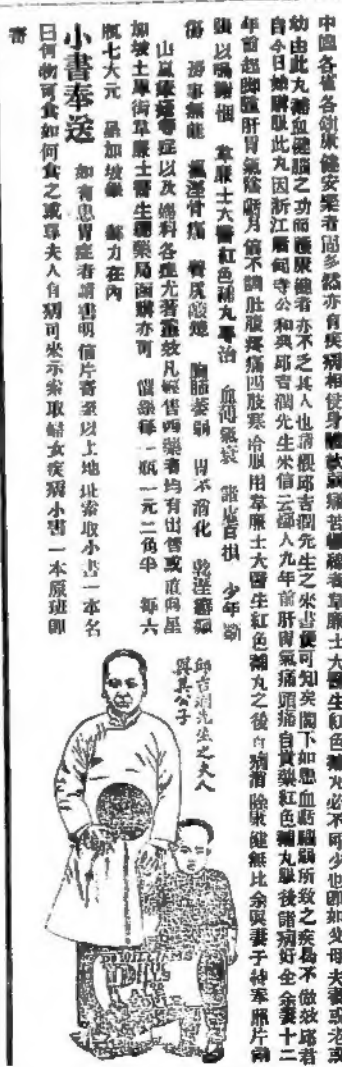 中國各省各創康健安樂者固多然亦有疾病相侵身體軟弱痛苦纏綿者韋廉士大醫生紅色補丸必不可少也即如父母夫妻或老或
幼由此丸補血健腦之功而獲康健者亦不乏其人也請觀邱吉澗先生之來書便可知矣閣下如患血虧腦弱所致之疾曷不倣效邱君
自今日始購服此丸因浙江 公和典邱吉澗先生來信云鄙人九年前肝胃氣痛頭痛自貴藥紅色補丸服後諸病好全余妻十二
年前起脚腫肝胃氣陰虧月信不調肚腹疼痛四肢寒冷服用韋廉士大醫生紅色補丸之後百病消除康健無比余與妻子特奉照片
以鳴謝悃 韋廉士大醫生紅色補丸專治 血薄氣衰 諸虛百損 少年斷
傷 房事無能 瘋濕骨痛 臀尻酸楚 胸膈萎弱 胃不消化 乾溼癬
山嵐瘴瘧等症以及婦科各症尤著靈效凡經售西藥者均有出售或直向星
加坡土庫街韋廉士醫生總藥局函購亦可 價銀每一瓶一元二角半 每六
瓶七大元 星加坡銀 郵力在內
小書奉送 如有患胃症者請書明信片寄至以上地址索取小書一本名
曰何物可食如何食之或尊夫人有病可來示索取婦女疾病小書一本原班即
寄
邱吉澗先生之夫人
與其公子